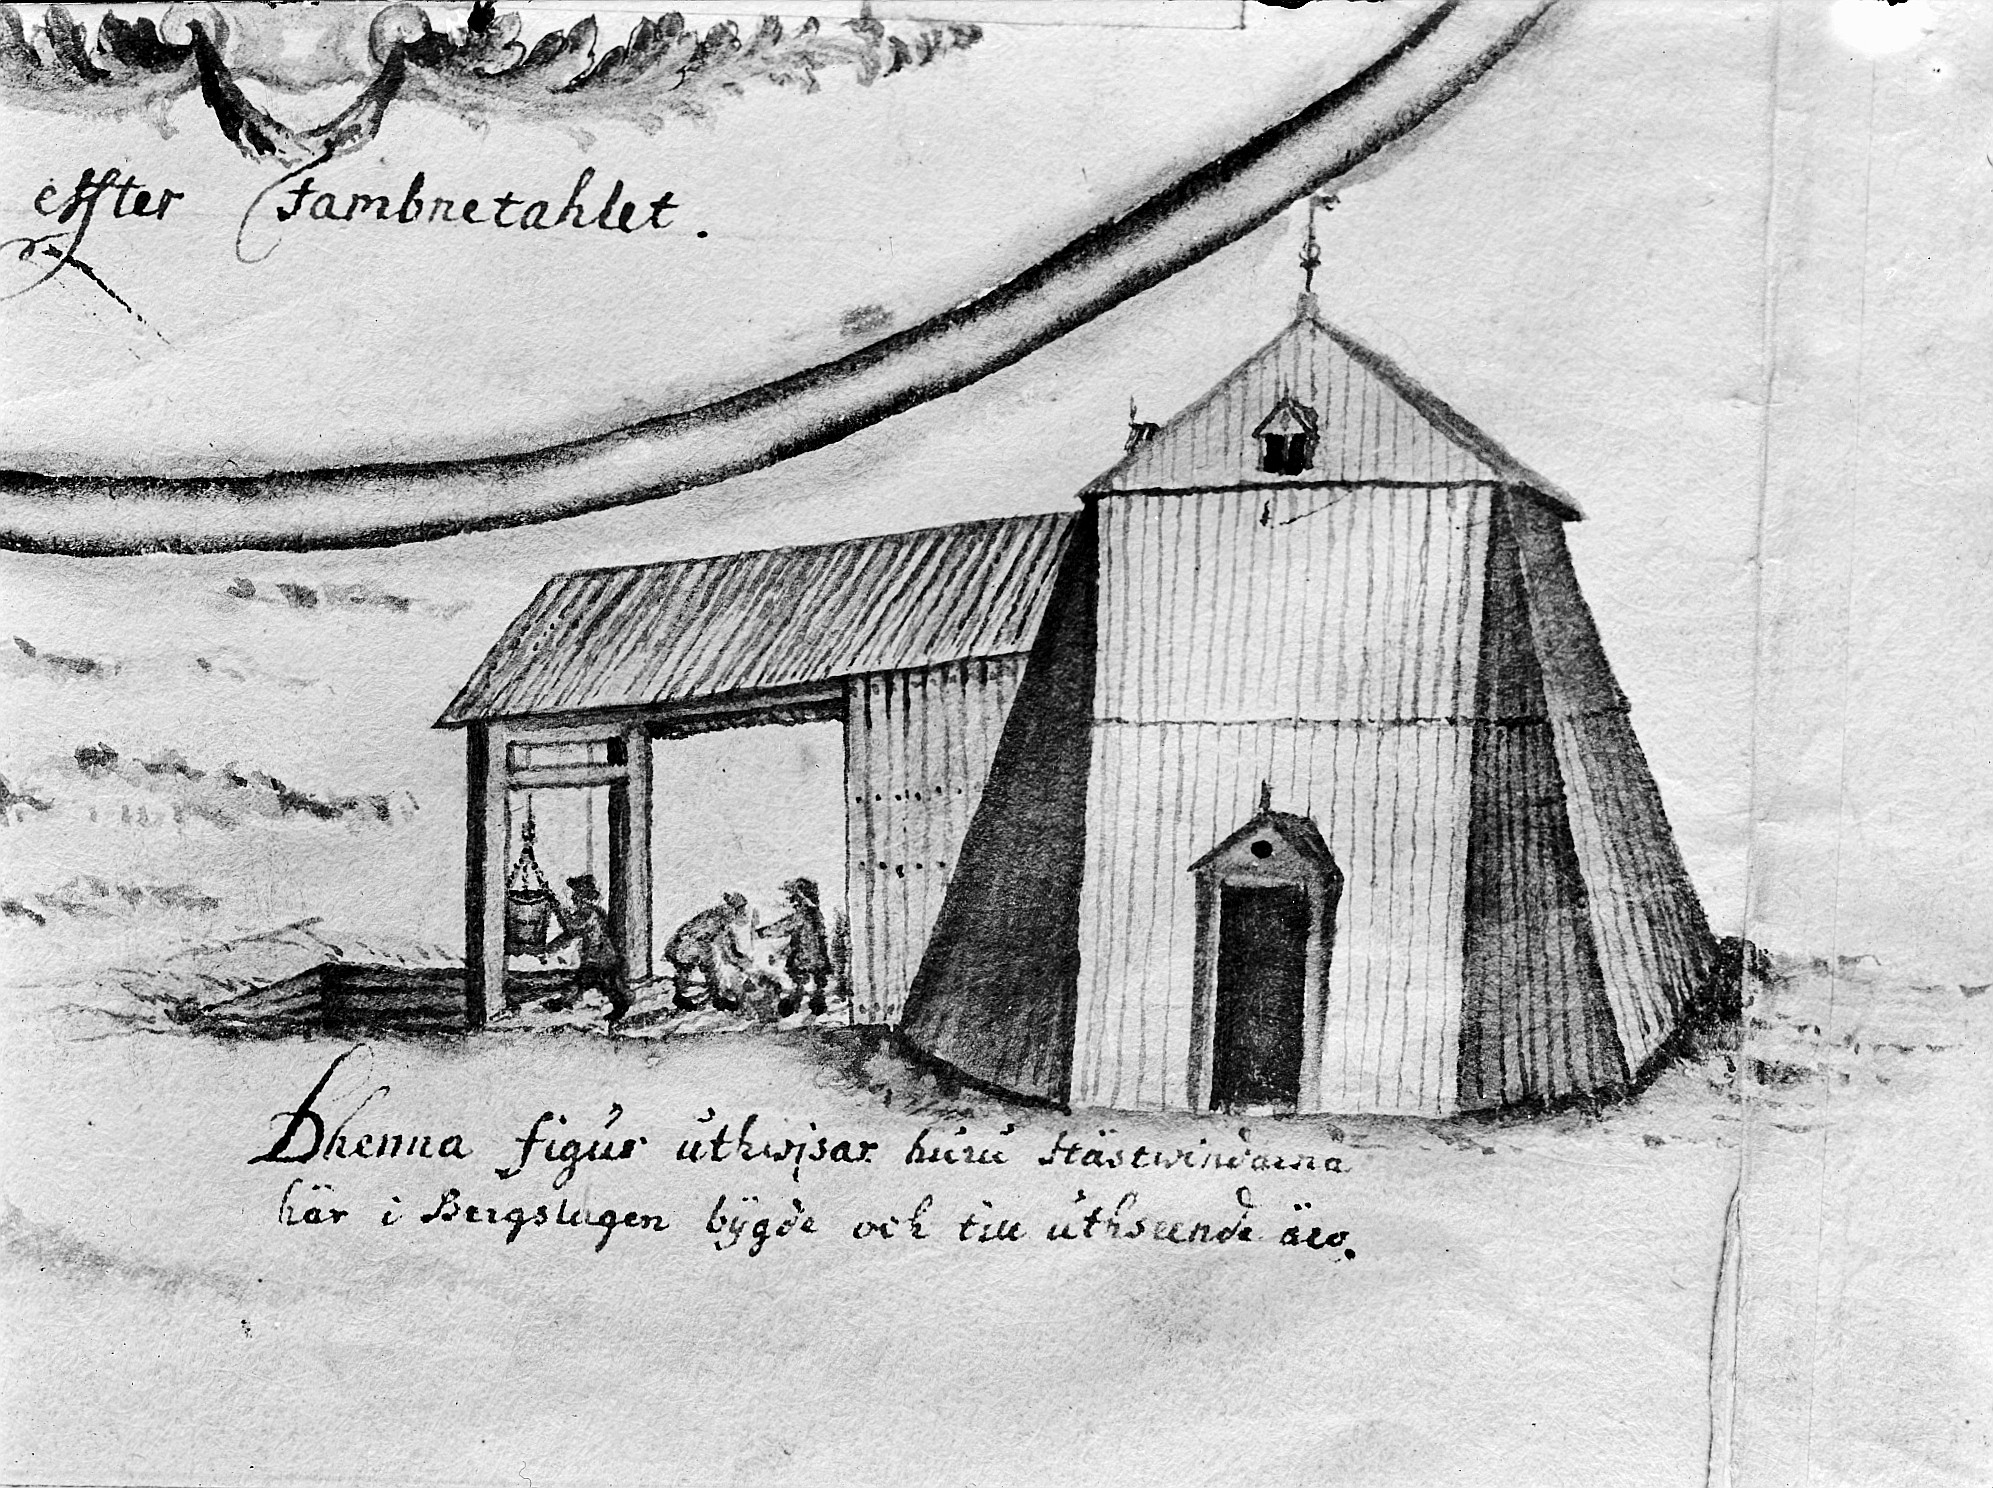 effter Fambnetahlet.
Dhenna figur uthwijsar huru Hästwindarna
här i Bergslagen bÿgde och till uthseende äro.